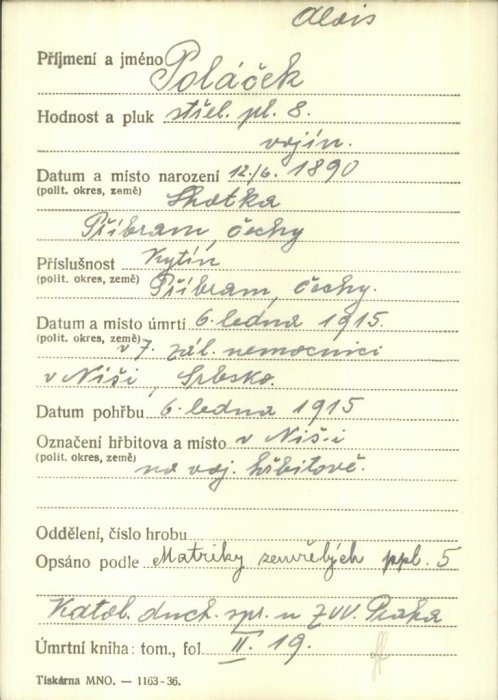 Alois
Příjmení a jméno Poláček
Hodnost a pluk střel. pl. 8.
vojín.
Datum a místo narození 12./6. 1890
(polit. okres, země) Lhotka
Příbram, Čechy
Příslušnost Kytín
(polit. okres, země) Příbram, Čechy.
Datum a místo úmrtí 6. ledna 1915.
(polit. okres, země) v 7. zál. nemocnici
v Niši, Srbsko.
Datum pohřbu 6. ledna 1915
Označení hřbitova a místo v Niši
(polit. okres, země) na voj. hřbitově.
Oddělení, číslo hrobu
Opsáno podle Matriky zemřelých ppl. 5
Katol. duch. spr. u ZVV. Praha
Úmrtní kniha: tom., fol. II. 19.
Tiskárna MNO. — 1163-36.